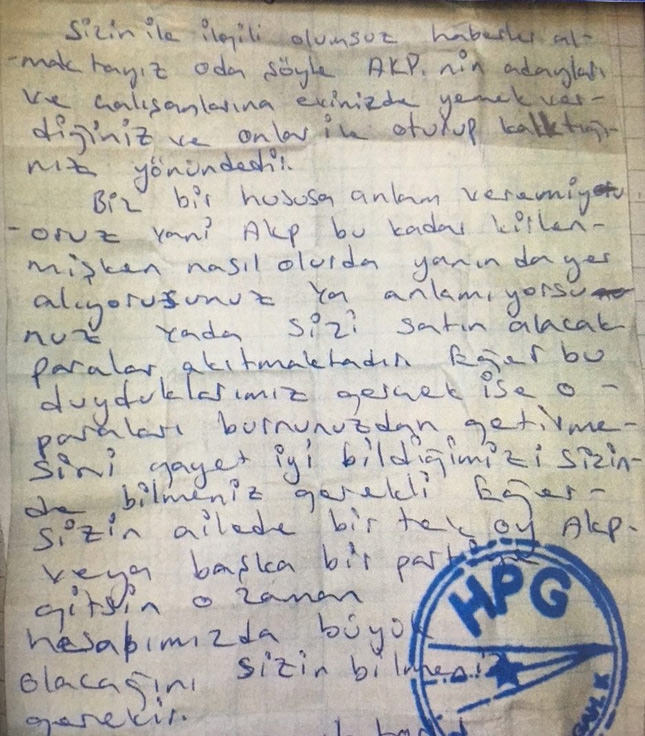 Sizin ile ilgili olumsuz haberler al-
-maktayız oda şöyle AKP. nin adayları
ve çalışanlarına evinizde yemek ver-
diğiniz ve onlar ile oturup kalktığı-
nız yönündedir.
Biz bir hususa anlam veremiy
-oruz yani Akp bu kadar kirlen-
mişken nasıl olurda yanında yer
alıyorusunuz ya anlamıyorsu
nuz yada sizi satın alacak
paralar akıtmaktadır Eğer bu
duyduklarımız gerçek ise o -
paraları burnunuzdan getirme-
sini gayet iyi bildiğimizi sizin-
de bilmeniz gerekli Eğer-
sizin ailede bir tek oy Akp-
veya başka bir
gitsin o zaman
hesabımızda büyük
olacağını sizin bilmeniz
gerekir.
HPG